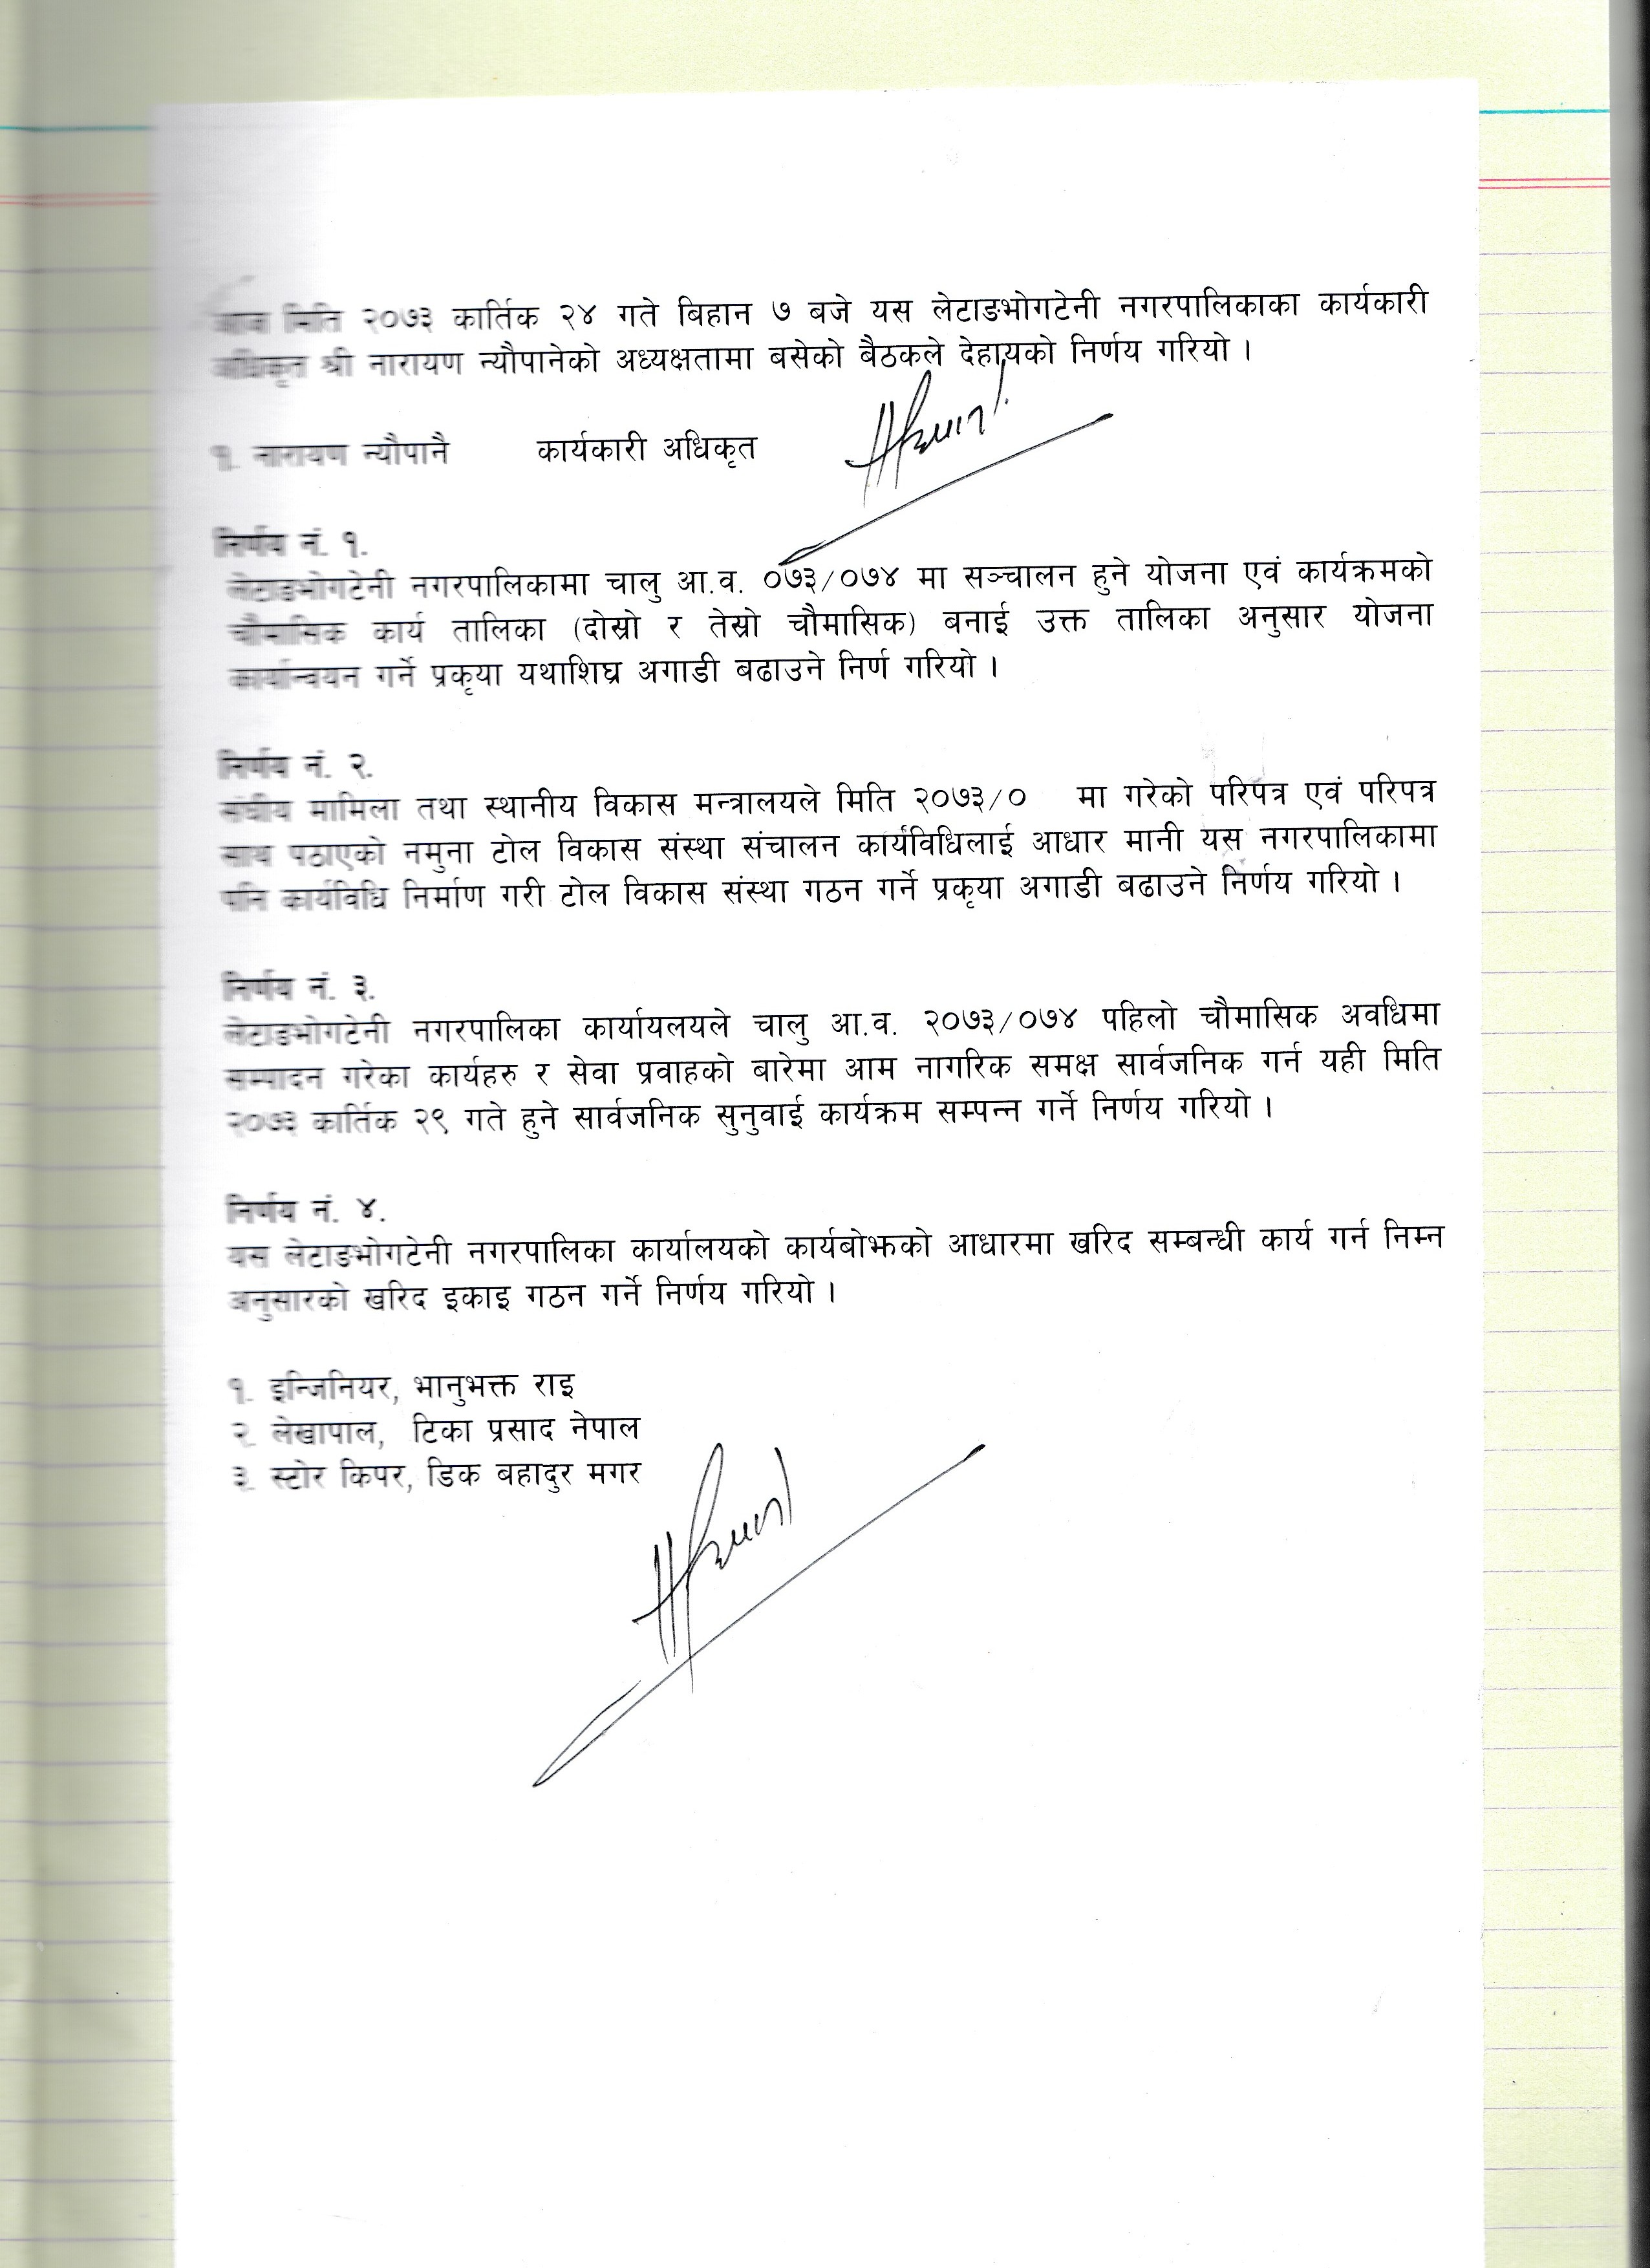 आज मिति २०७३ कार्तिक २४ गते बिहान ७ बजे यस लेटाङभोगटेनी नगरपालिकाका कार्यकारी
अधिकृत श्री नारायण न्यौपानेको अध्यक्षतामा बसेको बैठकले देहायको निर्णय गरियो ।
१. नारायण न्यौपानै कार्यकारी अधिकृत
निर्णय नं. १.
लेटाङभोगटेनी नगरपालिकामा चालु आ.व. ०७३/०७४ मा सञ्चालन हुने योजना एवं कार्यक्रमको
चौमासिक कार्य तालिका (दोस्रो र तेस्रो चौमासिक) बनाई उक्त तालिका अनुसार योजना
कार्यान्वयन गर्ने प्रकृया यथाशिघ्र अगाडी बढाउने निर्ण गरियो ।
निर्णय नं. २.
संघीय मामिला तथा स्थानीय विकास मन्त्रालयले मिति २०७३/० मा गरेको परिपत्र एवं परिपत्र
साथ पठाएको नमुना टोल विकास संस्था संचालन कार्यविधिलाई आधार मानी यस नगरपालिकामा
पनि कार्यविधि निर्माण गरी टोल विकास संस्था गठन गर्ने प्रकृया अगाडी बढाउने निर्णय गरियो ।
निर्णय नं. ३.
लेटाङभोगटेनी नगरपालिका कार्यायलयले चालु आ.व. २०७३/०७४ पहिलो चौमासिक अवधिमा
सम्पादन गरेका कार्यहरु र सेवा प्रवाहको बारेमा आम नागरिक समक्ष सार्वजनिक गर्न यही मिति
२०७३ कार्तिक २९ गते हुने सार्वजनिक सुनुवाई कार्यक्रम सम्पन्न गर्ने निर्णय गरियो ।
निर्णय नं. ४.
यस लेटाङभोगटेनी नगरपालिका कार्यालयको कार्यबोझको आधारमा खरिद सम्बन्धी कार्य गर्न निम्न
अनुसारको खरिद इकाइ गठन गर्ने निर्णय गरियो ।
१. इन्जिनियर, भानुभक्त राइ
२. लेखापाल, टिका प्रसाद नेपाल
३. स्टोर किपर, डिक बहादुर मगर